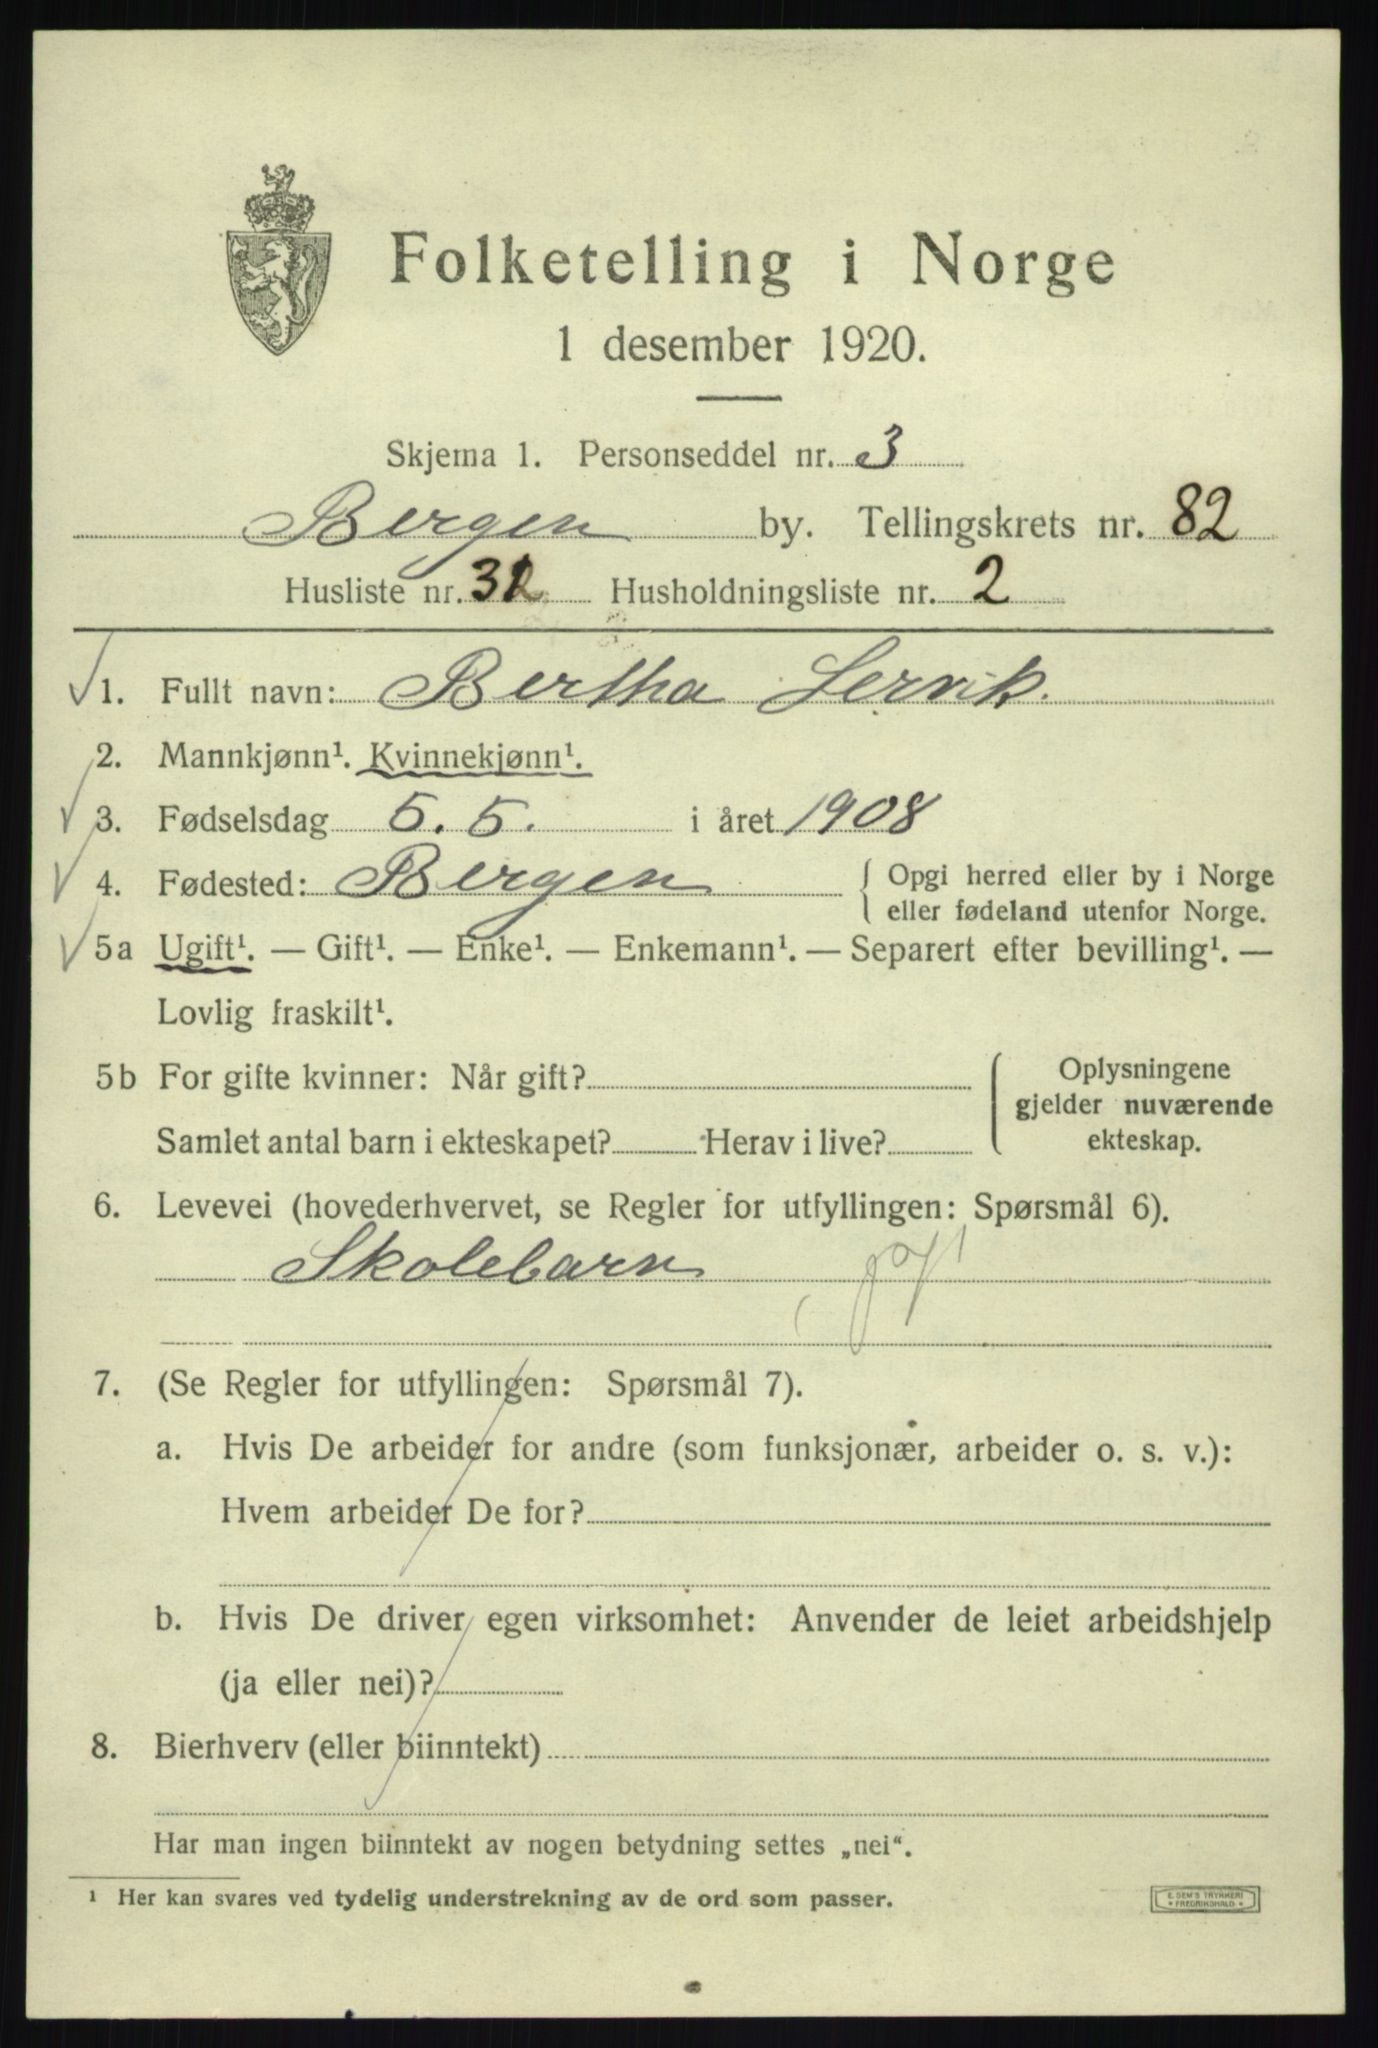 Folketelling i Norge
1 desember 1920.
Skjema 1. Personseddel nr. 3
Bergen by. Tellingskrets nr. 82
Husliste nr. Husholdningsliste nr. 2
1. Fullt navn: Bertha Lervik.
2. Mannkjønn¹. Kvinnekjønn¹.
3. Fødselsdag 5. 5. i året 1908
4. Fødested: Bergen { Opgi herred eller by i Norge
eller fødeland utenfor Norge.
5a Ugift¹. — Gift¹. — Enke¹. — Enkemann¹. — Separert efter bevilling¹. —
Lovlig fraskilt¹.
5b For gifte kvinner: Når gift? { Oplysningene
gjelder nuværende
Samlet antal barn i ekteskapet? Herav i live? ekteskap.
6. Levevei (hovederhvervet, se Regler for utfyllingen: Spørsmål 6).
Skolebarn
7. (Se Regler for utfyllingen: Spørsmål 7).
a. Hvis De arbeider for andre (som funksjonær, arbeider o. s. v.):
Hvem arbeider De for?
b. Hvis De driver egen virksomhet: Anvender de leiet arbeidshjelp
(ja eller nei)?
8. Bierhverv (eller biinntekt)
Har man ingen biinntekt av nogen betydning settes „nei“.
¹ Her kan svares ved tydelig understrekning av de ord som passer.
E. SEM'S TRYKKERI
• FREDRIKSHALD •